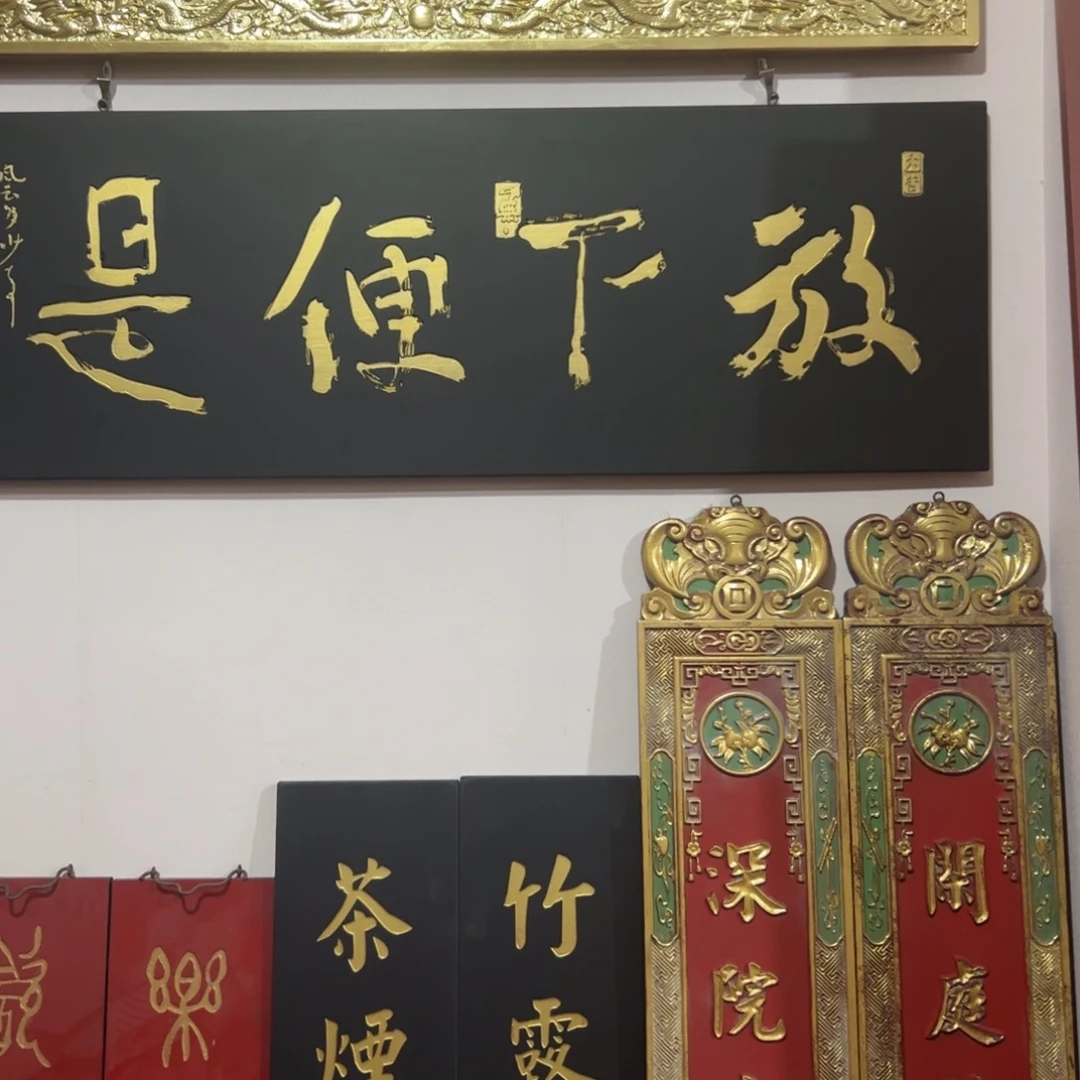 放下便是
閑庭
深院
竹霞
茶煙
樂